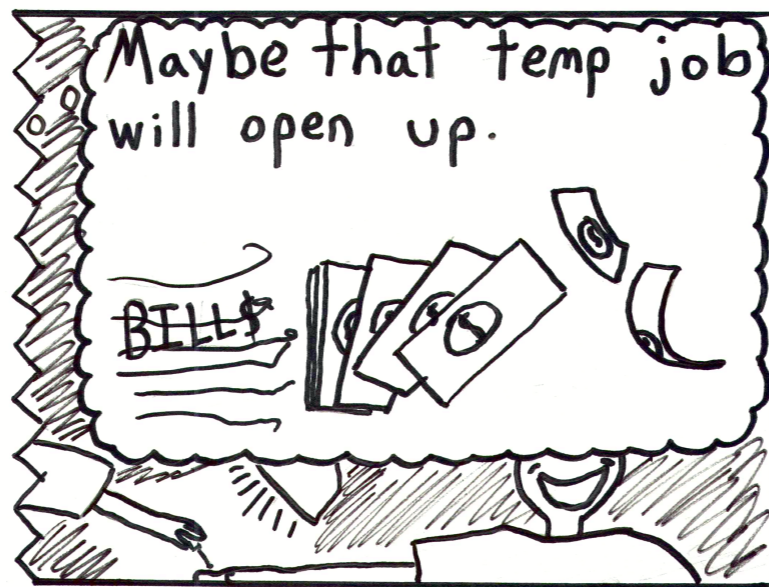 Maybe that temp job
will open up.
BILL$